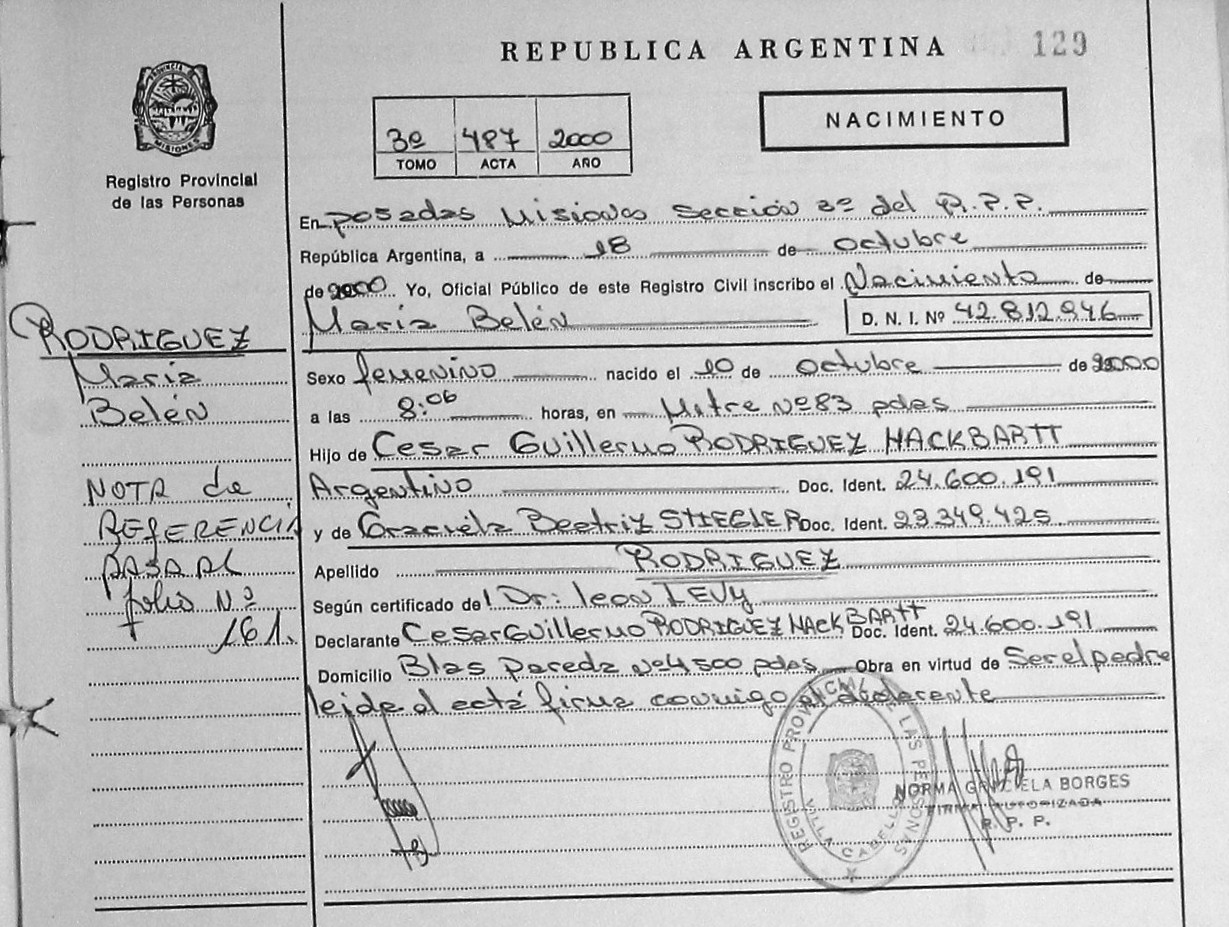 REPUBLICA ARGENTINA 129
PROVINCIA DE MISIONES
Registro Provincial
de las Personas
3º 487 2000
TOMO ACTA AÑO
NACIMIENTO
En posadas Misiones Sección 3º del R.P.P.
República Argentina, a 18 de octubre
de 2000. Yo, Oficial Público de este Registro Civil inscribo el Nacimiento de
María Belén D. N. I. Nº 42.812.946
RODRIGUEZ
María
Belén
Sexo femenino nacido el 10 de octubre de 2000
a las 8:06 horas, en Mitre Nº 83 pdas
Hijo de Cesar Guillermo RODRIGUEZ HACKBARTT
Argentino Doc. Ident. 24.600.191
y de Graciela Beatriz STIEGLER Doc. Ident. 23.349.425
Apellido RODRIGUEZ
Según certificado del Dr: Leon LEVY
Declarante Cesar Guillermo RODRIGUEZ HACKBARTT Doc. Ident. 24.600.191
Domicilio Blas Pareda Nº 4500 pdas Obra en virtud de Ser el padre
leida el acta firma conmigo el declarante
NOTA de
REFERENCIA
PASA AL
folio Nº
161.
REGISTRO PROVINCIAL DE LAS PERSONAS
VILLA CABELLO
NORMA GRACIELA BORGES
FIRMA AUTORIZADA
R. P. P.